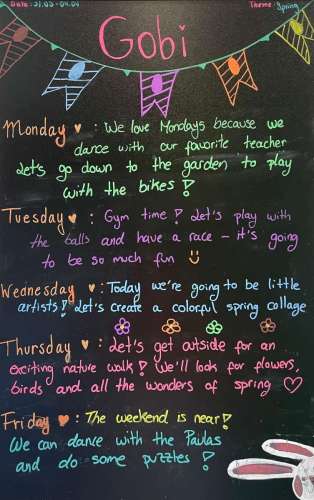 Date: 31.03-04.04
Theme: Spring
Gobi
Monday ♥: We love Mondays because we
dance with our favorite teacher
Let's go down to the garden to play
with the bikes!
Tuesday ♥: Gym time! Let's play with
the balls and have a race - it's going
to be so much fun
Wednesday ♥: Today we're going to be little
artists! Let's create a colorful spring collage
Thursday ♥: Let's get outside for an
exciting nature walk! We'll look for flowers,
birds and all the wonders of spring ♡
Friday ♥: The weekend is near!
We can dance with the Paulas
and do some puzzles!